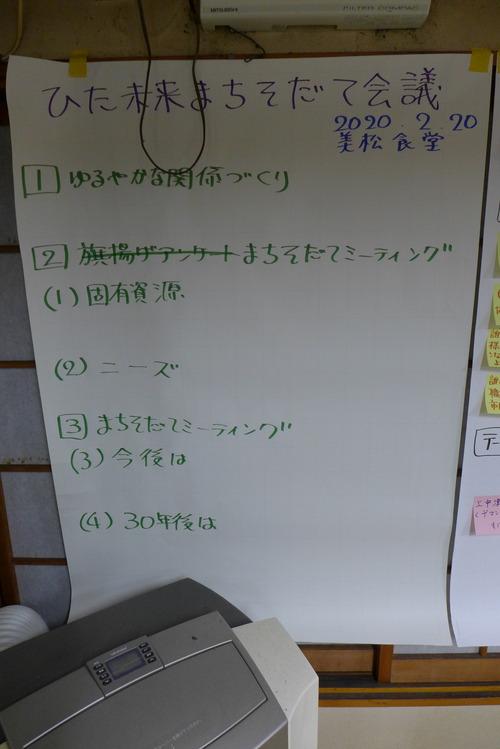 MITSUBISHI
FILTER COMPAC
ひた未来まちそだて会議
2020.2.20
美松食堂
1 ゆるやかな関係づくり
2 旗揚げアンケートまちそだてミーティング
(1) 固有資源
(2) ニーズ
3 まちそだてミーティング
(3) 今後は
(4) 30年後は
テー